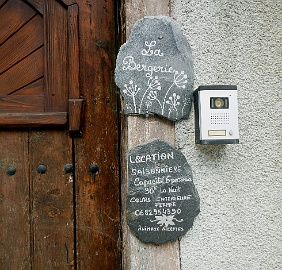 La
Bergerie
LOCATION
SAISONNIÈRE
Capacité 6 personnes
90€ La Nuit
COURS INTÉRIEURE
FERMÉE
0682954390
ANIMAUX ACCEPTÉS